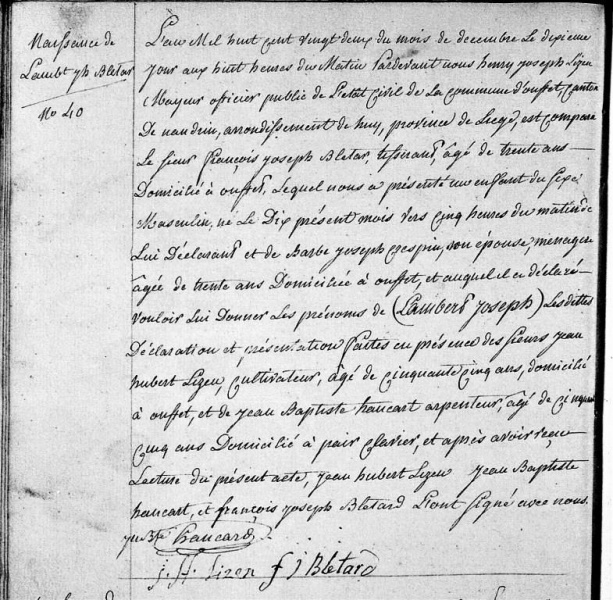 Naissance de
Lambt jh Bletar
No 40
L'an Mil huit cent vingt deux du mois de decembre Le dixieme
jour aux huit heures du Matin Pardevant nous henry joseph Lizen
Mayeur officier public de L'etat Civil de La commune d'ouffet, canton
De nandrin, arrondissement de huy, province de Liege, est comparu
Le sieur françois joseph Bletar, tisserand, âgé de trente ans
Domicilié à ouffet, Lequel nous a présenté un enfant du sexe
Masculin, né Le Dix présent mois vers cinq heures du matin de
Lui Déclarant et de Barbe joseph crespin, son épouse, menagere
âgée de trente ans Domiciliée à ouffet, et auquel il a déclaré
vouloir Lui Donner Les prénoms de (Lambert joseph) Lesdittes
Déclaration et présentation faites en présence des sieurs jean
hubert Lizen, cultivateur, âgé de cinquante cinq ans, domicilié
à ouffet, et de jean Baptiste haucart arpenteur, âgé de cinquante
cinq ans Domicilié à pair clavier, et après avoir reçu
Lecture du présent acte, jean hubert Lizen jean Baptiste
haucart, et françois joseph Bletard L'ont signé avec nous.
jn Bte haucard
j. H. Lizen f j Bletard